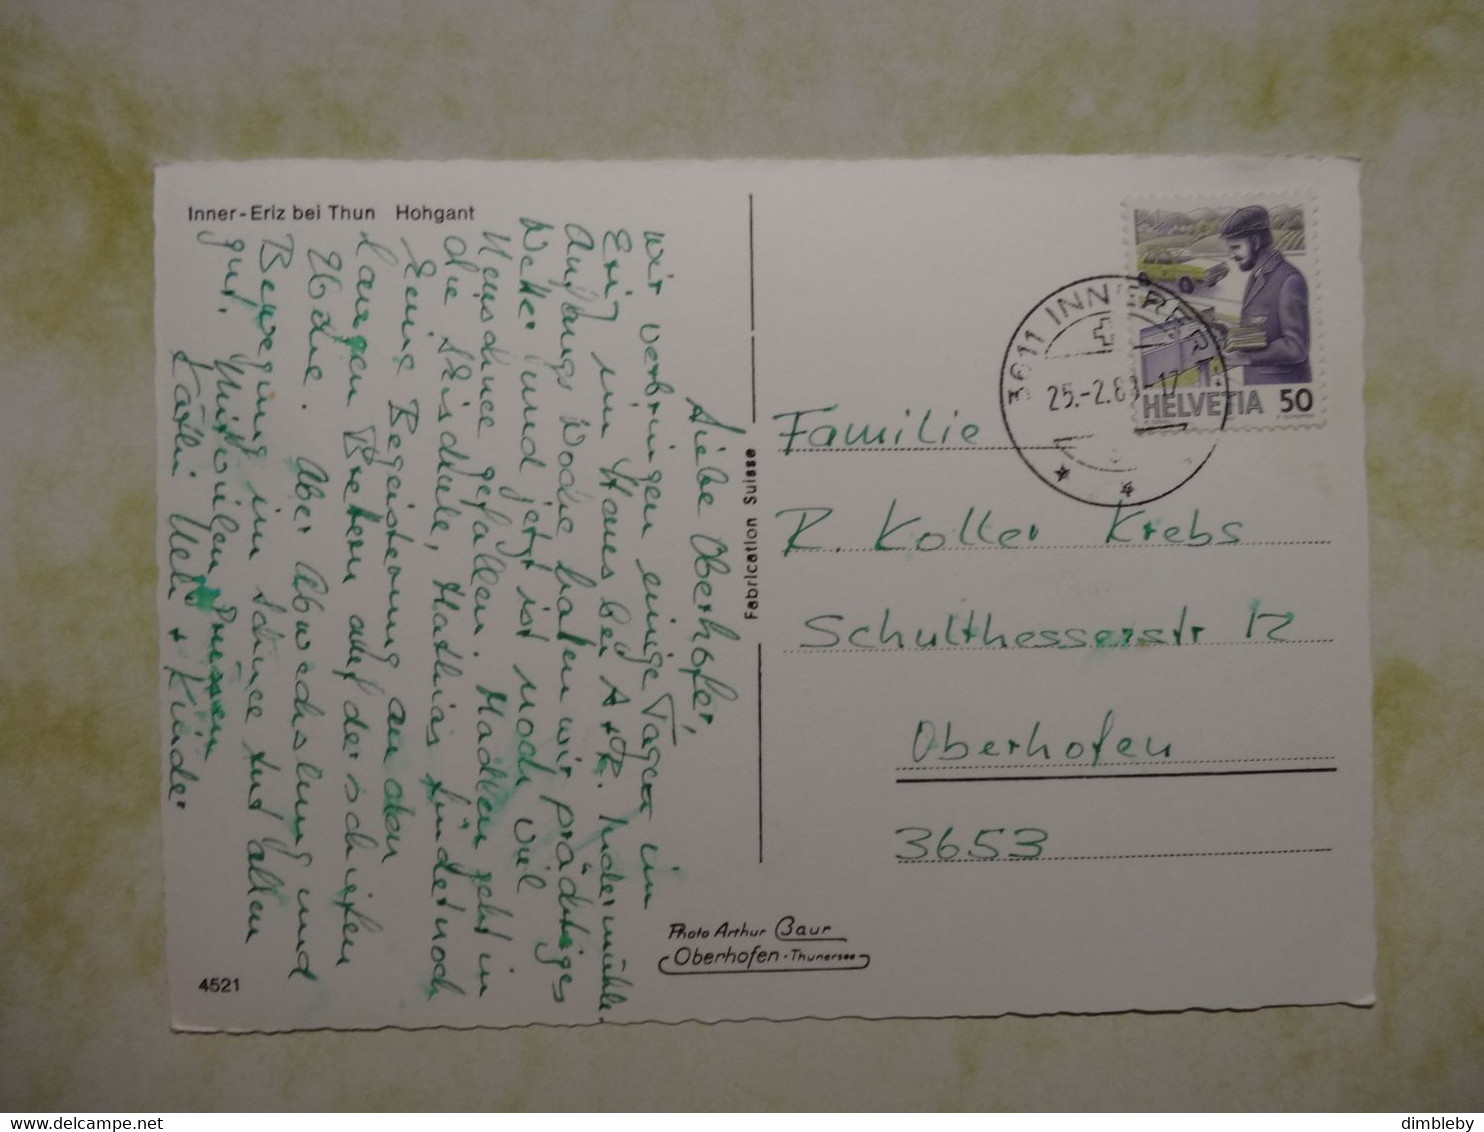 Inner-Eriz bei Thun Hohgant
Liebe Oberhofer,
Wir verbringen einige Tage im
Eriz im Haus bei Indermühle.
Anfangs Woche hatten wir prächtiges
Wetter und jetzt ist noch viel
Neuschnee gefallen. Madlen geht in
die Skischule, Mathias findet noch
keine Begeisterung an den
langen Brettern auf der schiefen
Ebene. Aber Abwechslung und
Bewegung im Schnee tut allen
gut. Mittwoilen
Käthi Ueli + Kinder
Fabrication Suisse
Photo Arthur Baur
Oberhofen - Thunersee
4521
3611 INNERERIZ
25.-2.8
-17
HELVETIA 50
Familie
R. Koller Krebs
Schulthesserstr 12
Oberhofen
3653
dimbleby